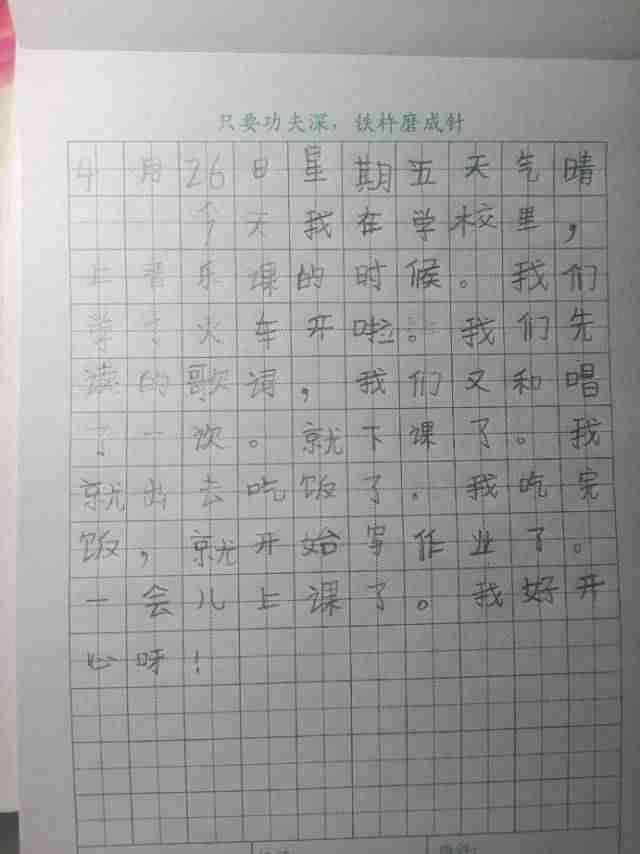 只要功夫深，铁杵磨成针
4月26日星期五天气晴
今天我在学校里，
上音乐课的时候。我们
学了火车开啦。我们先
读的歌词，我们又和唱
了一次。就下课了。我
就出去吃饭了。我吃完
饭，就开始写作业了。
一会儿上课了。我好开
心呀！